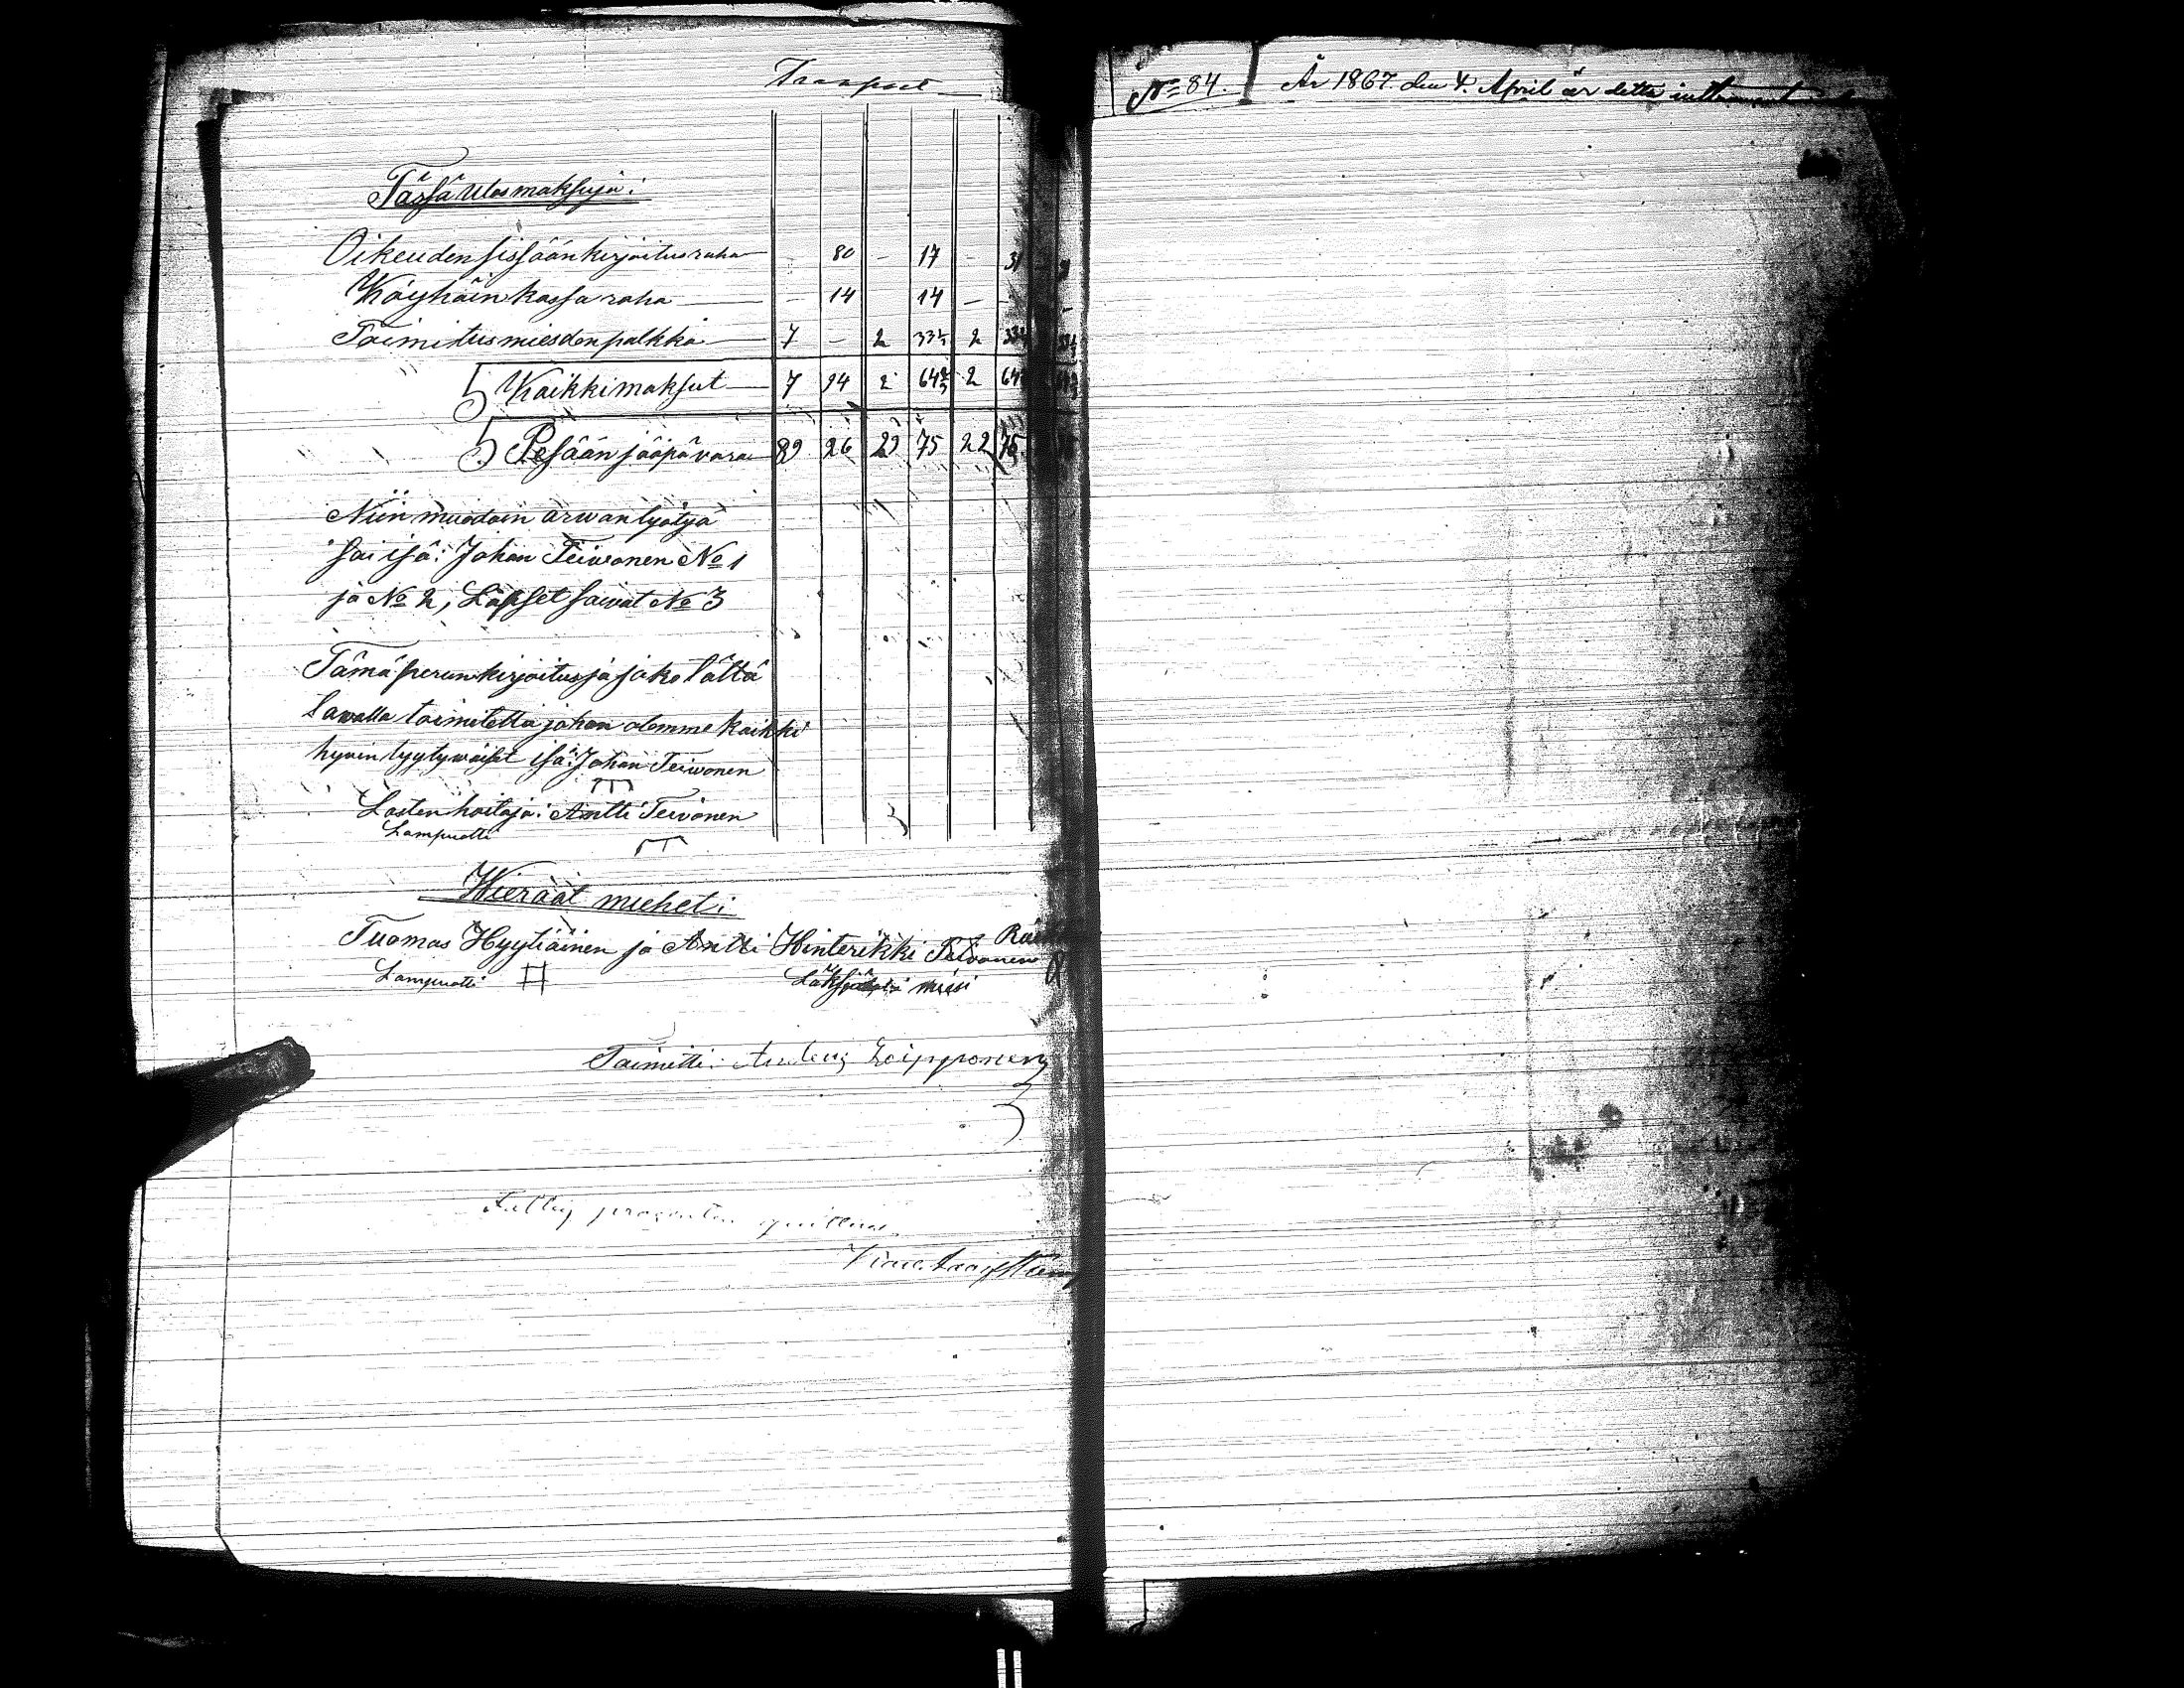 Transport
Tässä Ulosmaksuja:
Oikeuden sissäänkirjoitus raha — - 80 - 17 - 31
Köyhäin kassa raha — - 14 14 - -
Toimitusmiesden palkka — 7 - 2 33⅓ 2 33⅓
Kaikki maksut — 7 94 2 64⅔ 2 64
Pesään jääpä vara — 89 26 29 75 22 75
Niin muodoin arwan lyötyä
sai isä: Johan Teivonen No 1
ja No 2, Lapset saivat No 3
Tämä perunkirjoitus ja jako tältä
tawalla toimitettu johon olemme kaikki
hyvin tyytywäiset isä: Johan Teivonen
Lasten hoitaja: Antti Teivonen
Lampuotti
Wieraat miehet:
Tuomas Hyytiäinen ja Antti Hinterikki
Lampuotti miesi
Toimitti: Loipponen
N° 84. År 1867. den 4. April är detta